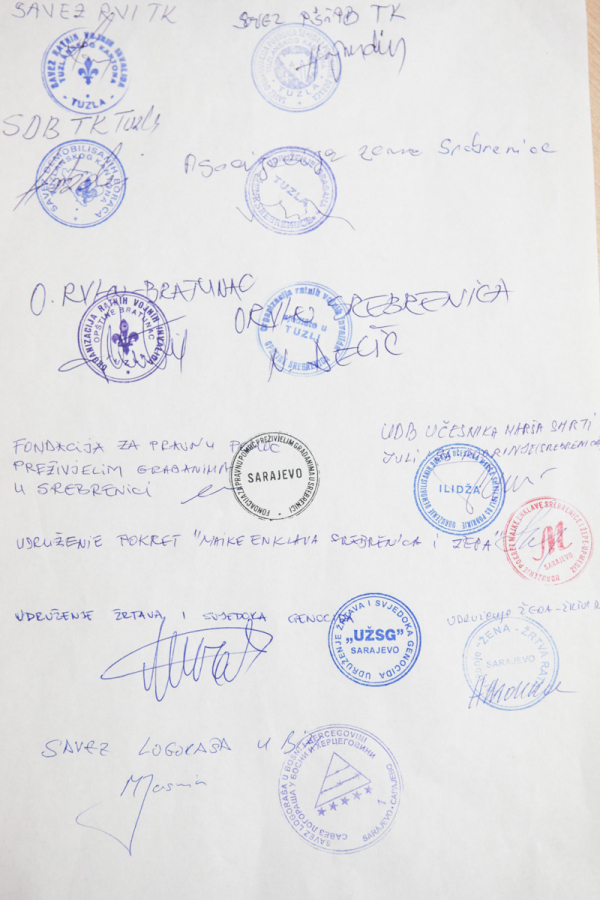 SAVEZ RVI TK
SAVEZ RATNIH VOJNIH INVALIDA
TUZLANSKOG KANTONA
TUZLA
SAVEZ TK
TUZLA
SDB TK Tuzla
SAVEZ DEMOBILISANIH BORACA
žena Srebrenice
TUZLA
O. RVI BRATUNAC
ORGANIZACIJA RATNIH VOJNIH INVALIDA
OPŠTINE BRATUNAC
TUZLA
SREBRENICA
Organizacija ratnih vojnih invalida
TUZLI
FONDACIJA ZA PRAVNU POMOĆ
PREŽIVJELIM GRAĐANIMA
U SREBRENICI
FONDACIJA ZA PRAVNU POMOĆ PREŽIVJELIM GRAĐANIMA U SREBRENICI
SARAJEVO
UDB UČESNIKA MARŠA SMRTI
ILIDŽA
UDRUŽENJE POKRET "MAJKE ENKLAVA SREBRENICA I ŽEPA"
M
SARAJEVO
UDRUŽENJE ŽRTAVA I SVJEDOKA GENOCIDA
UDRUŽENJE ŽRTAVA I SVJEDOKA GENOCIDA
„UŽSG"
SARAJEVO
UDRUŽENJE ŽENA-ŽRTVA R
"ŽENA - ŽRTVA RATA"
SARAJEVO
SAVEZ LOGORAŠA U BiH
SAVEZ LOGORAŠA U BOSNI I HERCEGOVINI
САВЕЗ ЛОГОРАША У БОСНИ И ХЕРЦЕГОВИНИ
SARAJEVO